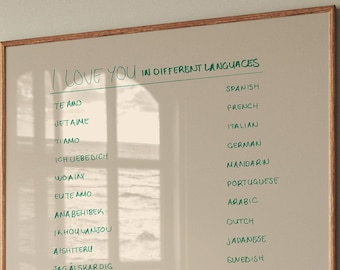 I LOVE YOU IN DIFFERENT LANGUAGES
TE AMO SPANISH
JE TAIME FRENCH
TI AMO ITALIAN
ICH LIEBE DICH GERMAN
WO AI NI MANDARIN
EU TE AMO PORTUGUESE
ANA BEHIBEK ARABIC
IK HOU VAN JOU DUTCH
AISHITERU JAPANESE
JAG ÄLSKAR DIG SWEDISH